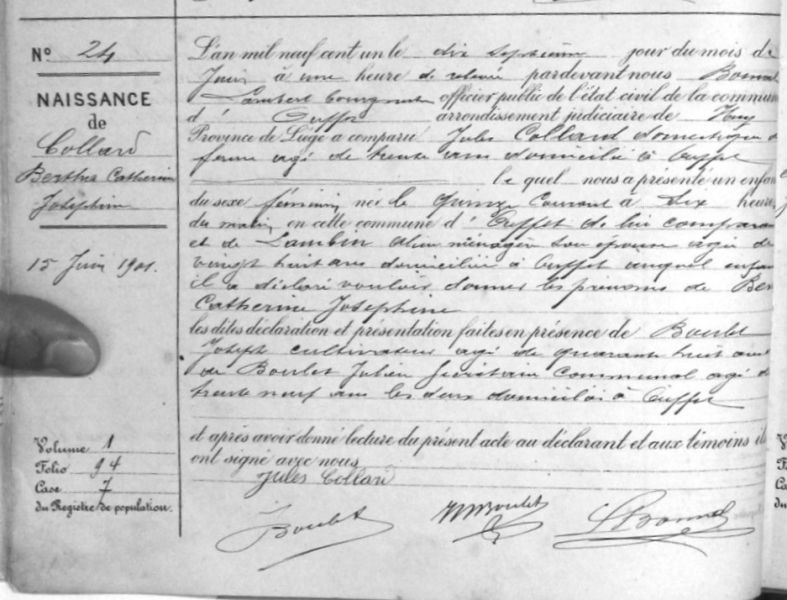 N° 24
NAISSANCE
de
Collard
Bertha Catherine
Joséphine
15 Juin 1901.
Volume 1
Folio 94
Case 7
du Registre de population.
L'an mil neuf cent un le dix septième jour du mois de
Juin à une heure de relevée pardevant nous
Lambert officier public de l'état civil de la commune
d' Ouffet arrondissement judiciaire de Huy
Province de Liège a comparu Jules Collard domestique de
ferme agé de trente ans domicilié à Ouffet
le quel nous a présenté un enfant
du sexe féminin né le quinze Courant à dix heures
du matin en cette commune d'Ouffet de lui comparant
et de Lambin ménagère son épouse agée de
vingt huit ans domiciliée à Ouffet auquel enfant
il a déclaré vouloir donner les prénoms de Ber
Catherine Joséphine
les dites déclaration et présentation faites en présence de Boulet
Joseph cultivateur agé de quarante huit ans
de Boulet Julien Secrétaire Communal agé de
trente neuf ans les deux domiciliés à Ouffet
et après avoir donné lecture du présent acte au déclarant et aux témoins ils
ont signé avec nous
Jules Collard
J Boulet
Boulet
L Bonmal